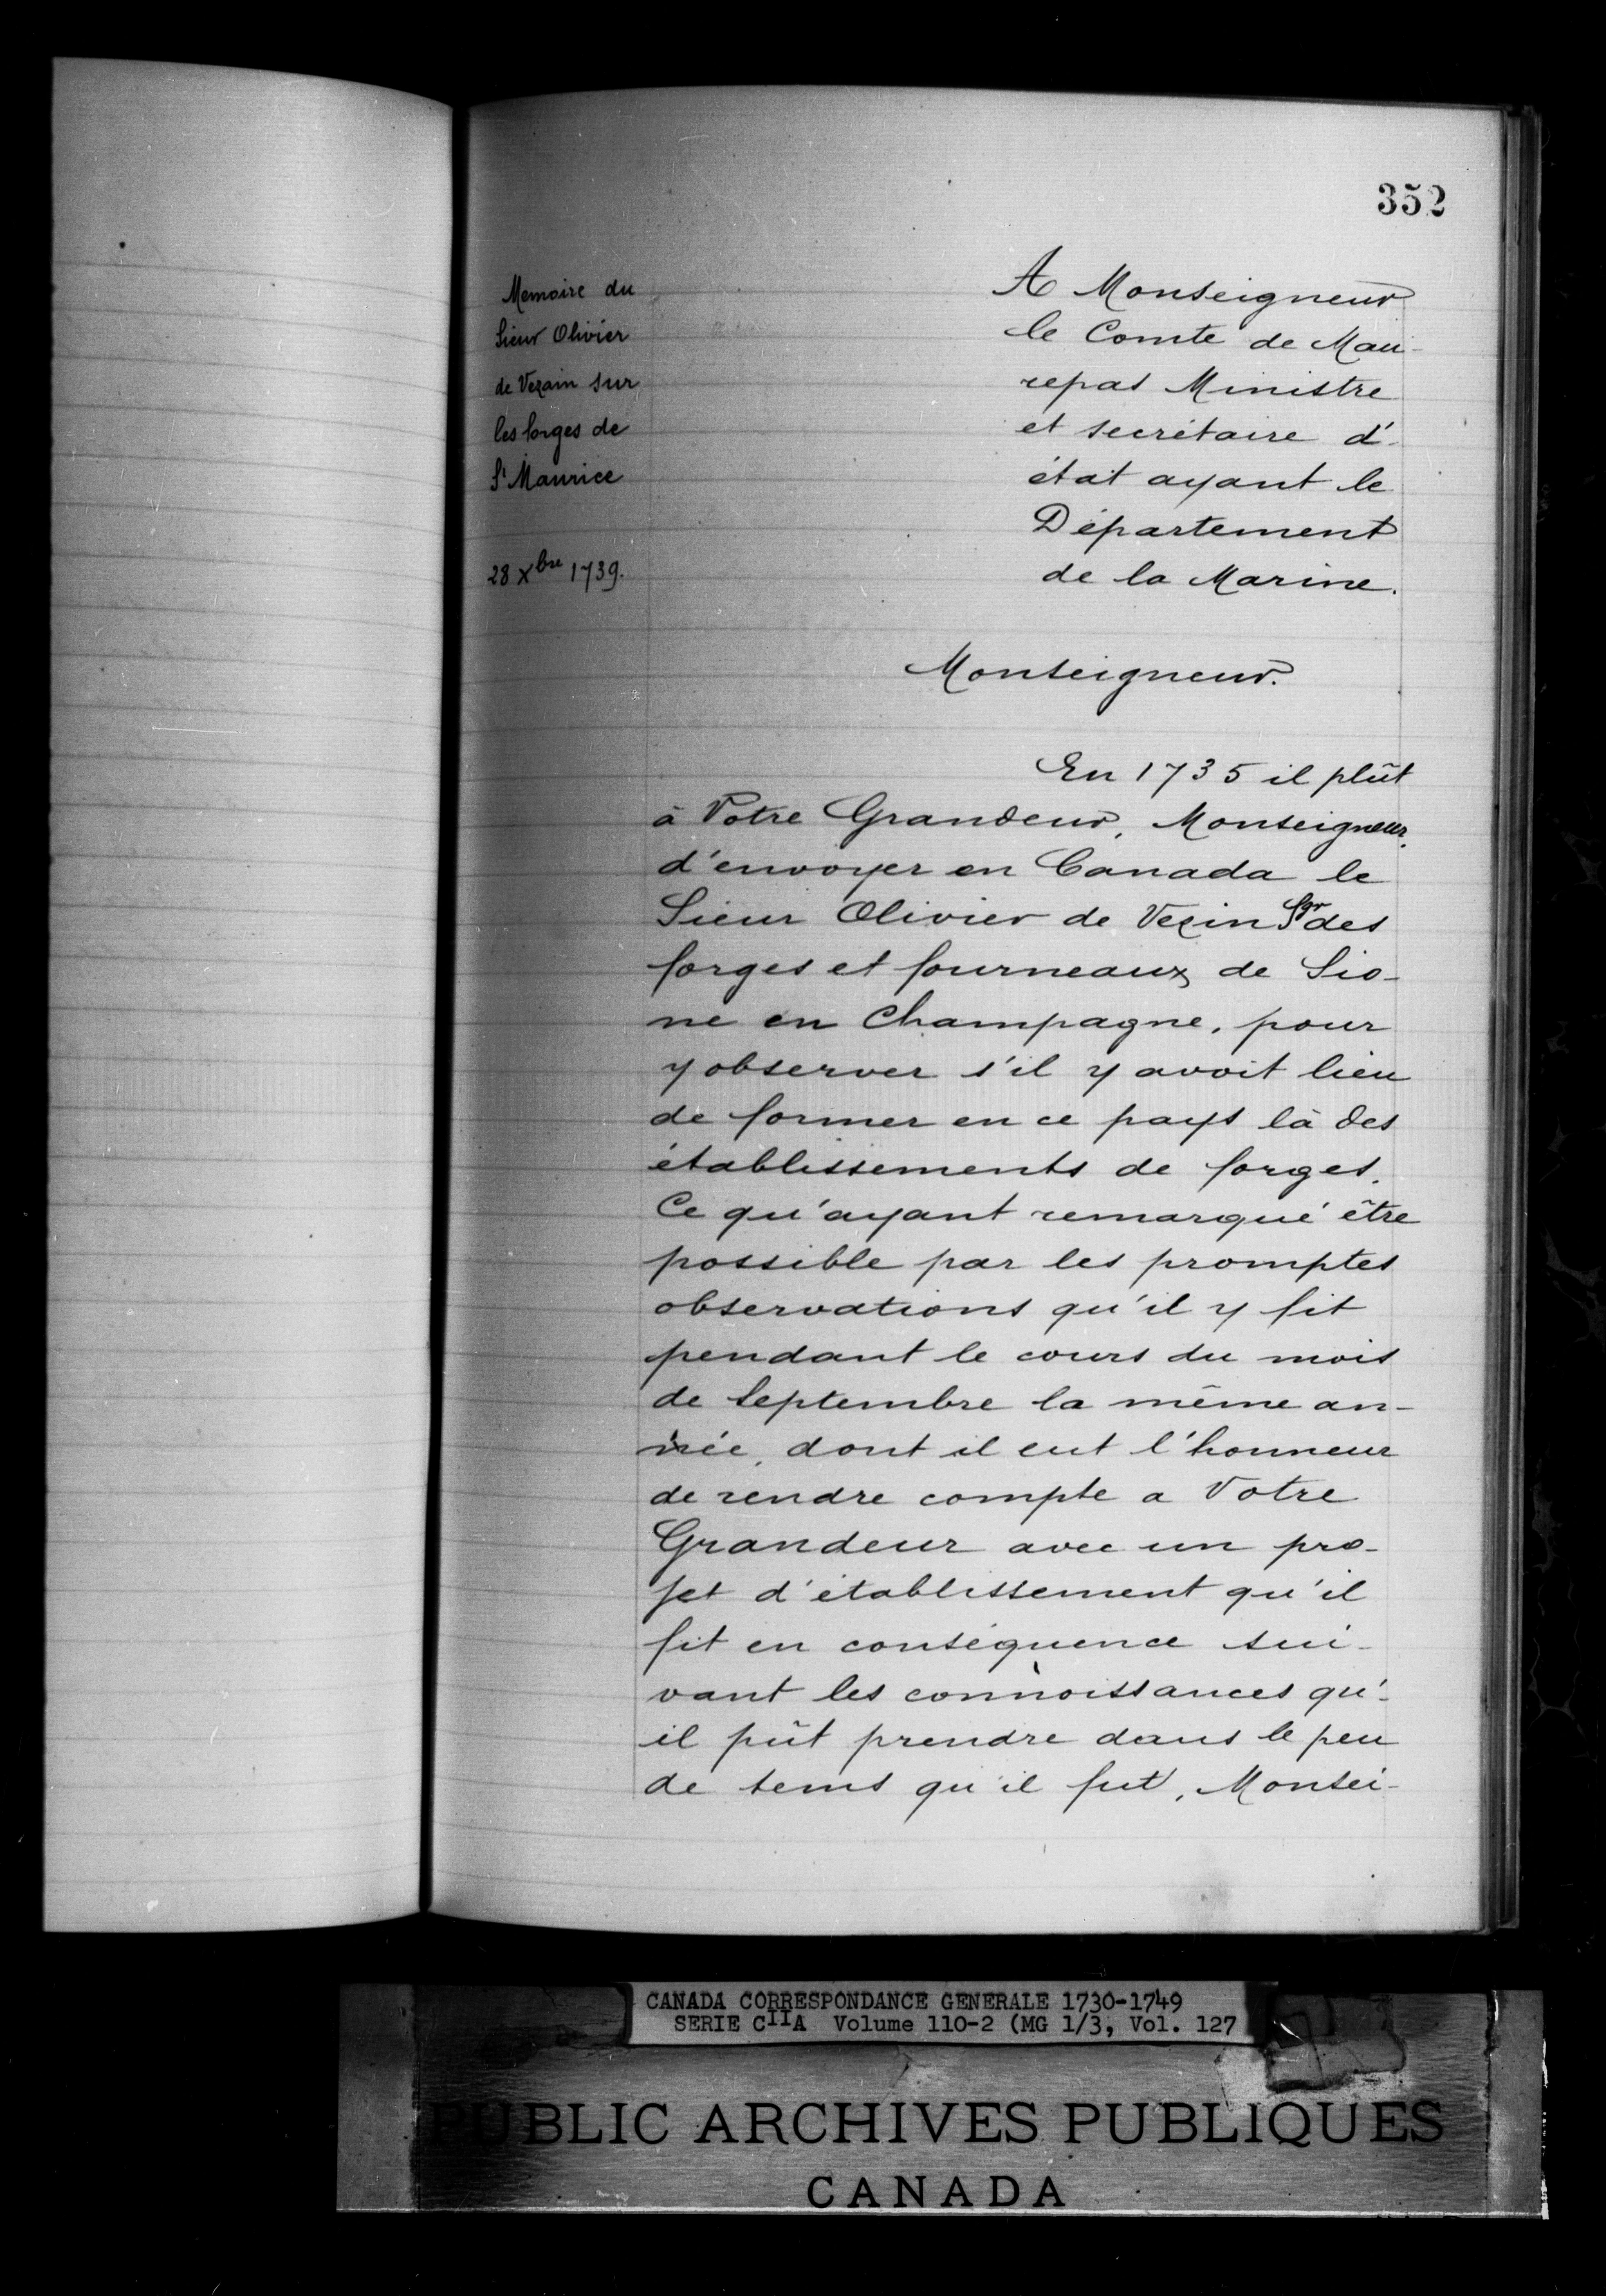 352
Memoire du
Sieur Olivier
de Vezain sur
les forges de
St Maurice
28 Xbre 1739.
A Monseigneur
le Comte de Mau-
repas Ministre
et secrétaire d'-
état ayant le
Département
de la Marine.
Monseigneur.
En 1735 il plût
à Votre Grandeur, Monseigneur,
d'envoyer en Canada le
Sieur Olivier de Vezin Sgr des
forges et fourneaux de Sio-
ne en Champagne, pour
y observer s'il y avoit lieu
de former en ce pays là des
établissements de forges.
Ce qu'ayant remarqué être
possible par les promptes
observations qu'il y fit
pendant le cours du mois
de Septembre la même an-
née, dont il eut l'honneur
de rendre compte a Votre
Grandeur avec un pro-
jet d'établissement qu'il
fit en conséquence sui-
vant les connoissances qu'-
il pût prendre dans le peu
de tems qu'il fut, Monsei-
CANADA CORRESPONDANCE GENERALE 1730-1749
SERIE CIIA Volume 110-2 (MG 1/3, Vol. 127
PUBLIC ARCHIVES PUBLIQUES
CANADA